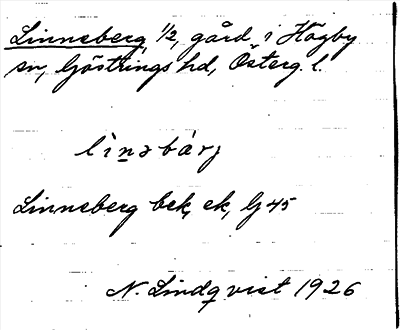 Linneberg, 1/2, gård i Högby
sn, Göstrings hd, Österg. l.
lìnəbárj
Linneberg bek, ek, G 45
N. Lindqvist 1926